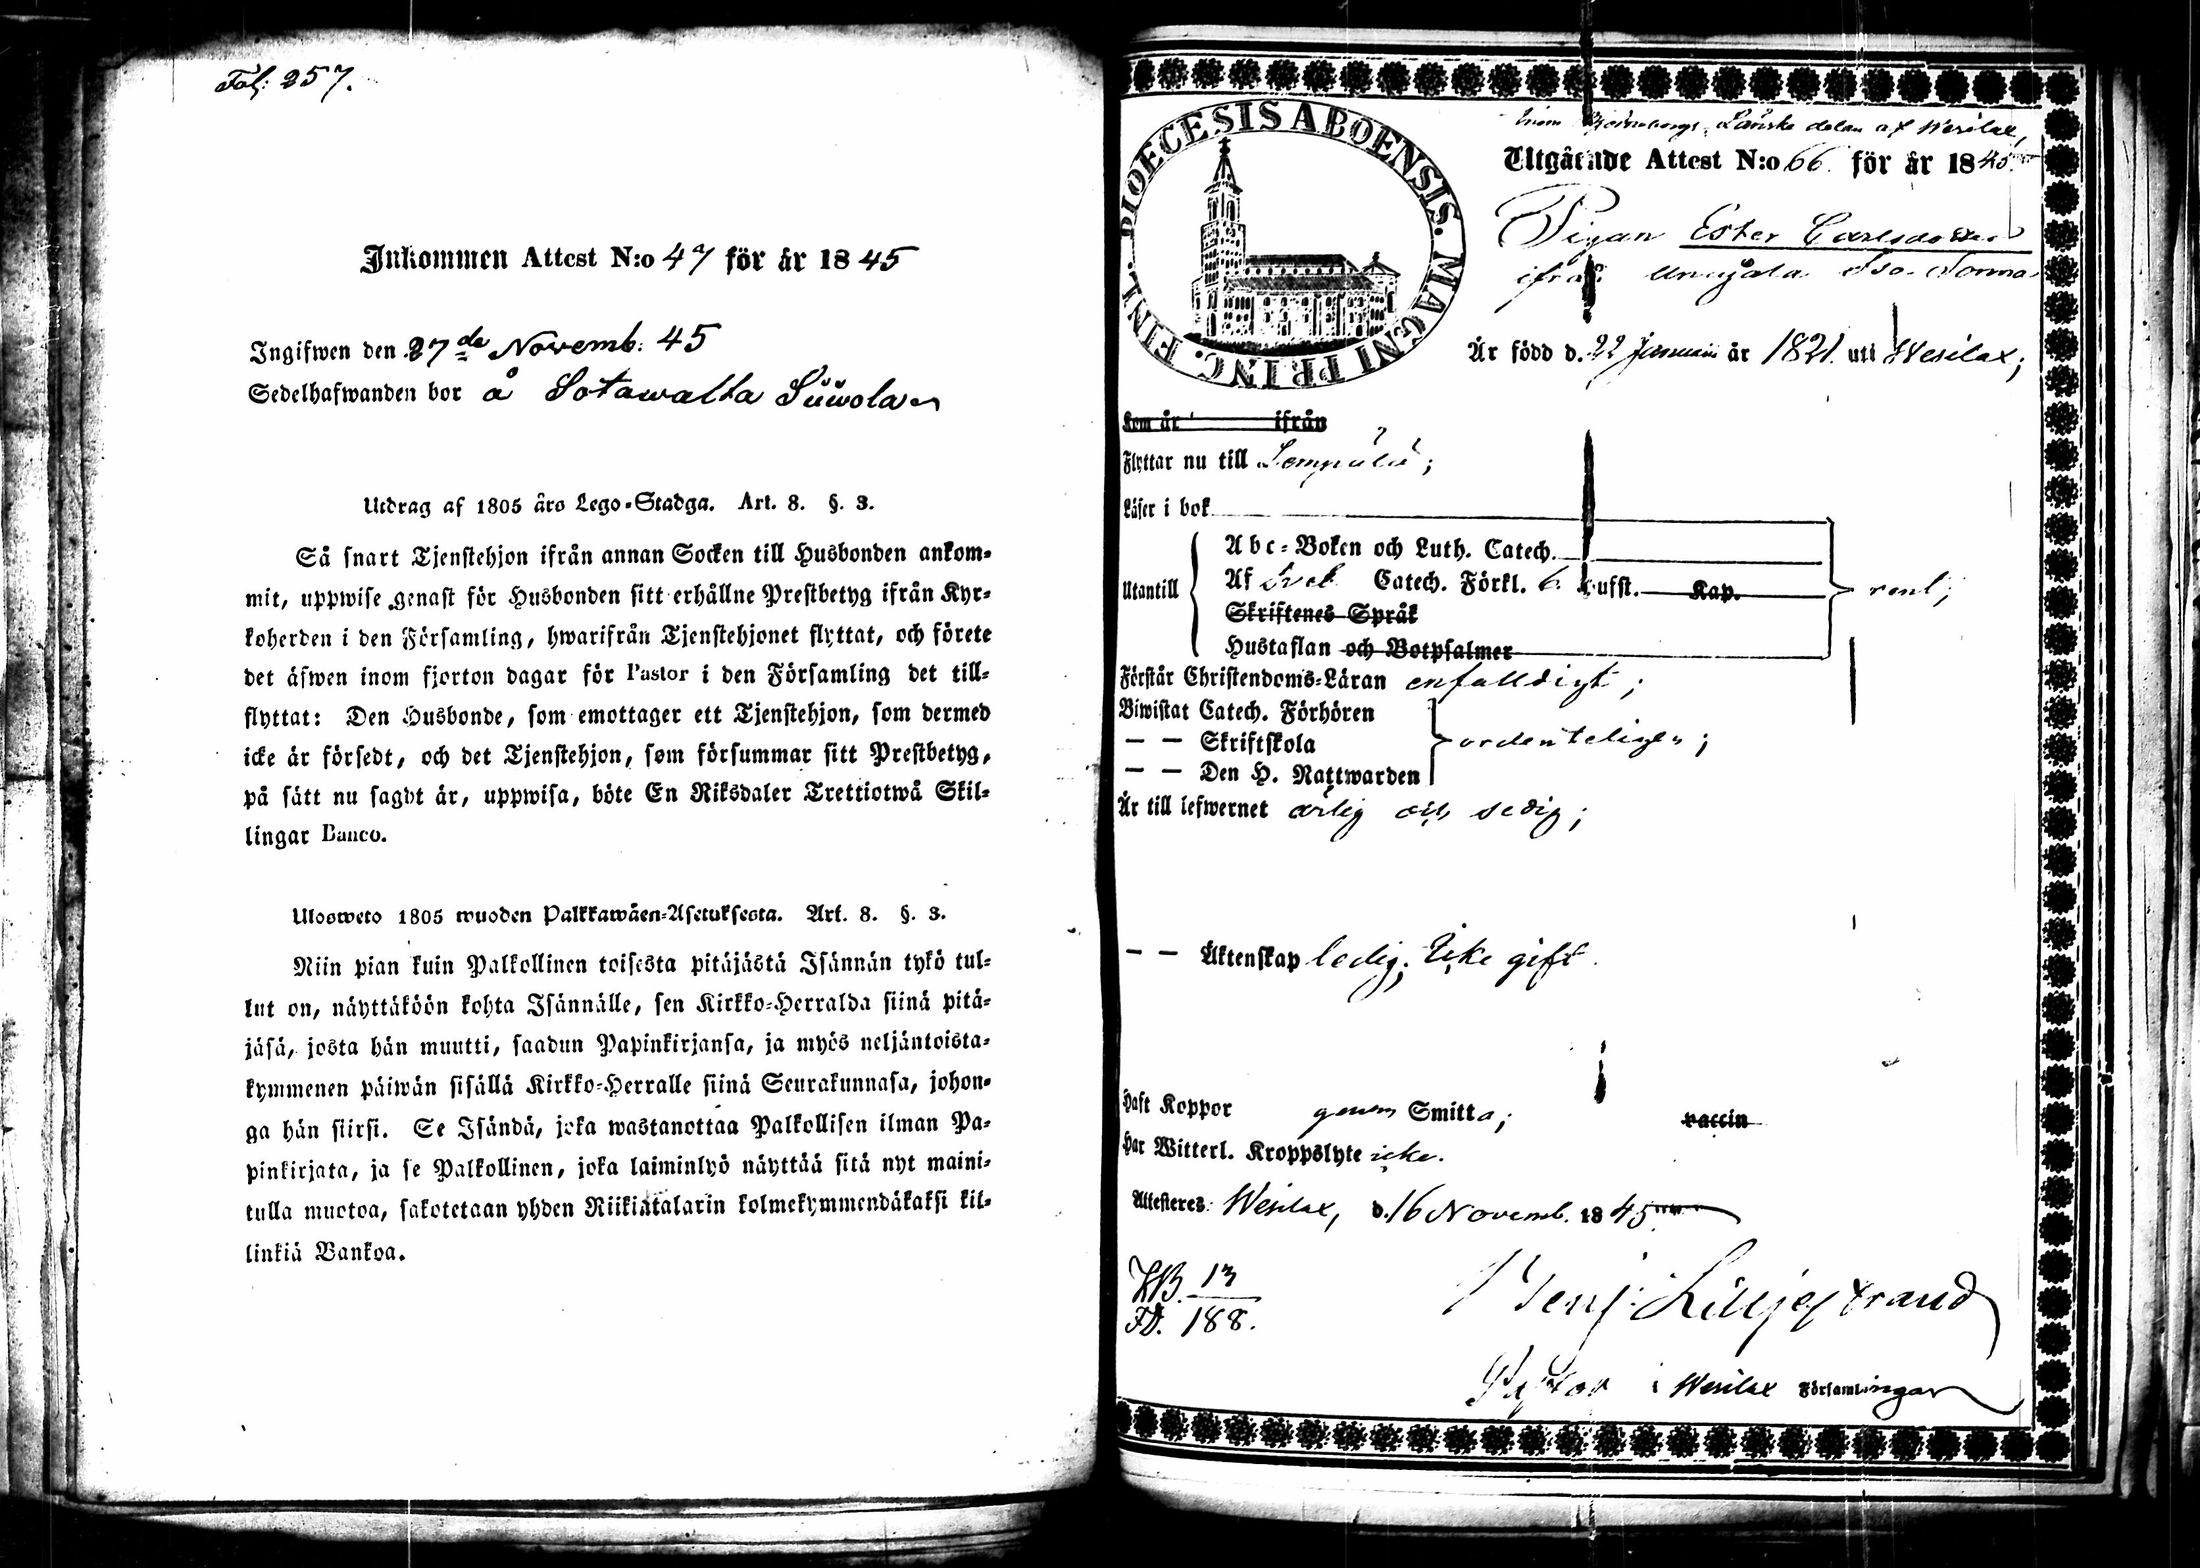 Fol: 257.
Inkommen Attest N:o 47 för år 1845
Ingifwen den 27de Novemb: 45
Sedelhafwanden bor å Sotawalta Süwola
Utdrag af 1805 års Lego-Stadga. Art. 8. §. 3.
Så snart Tjenstehjon ifrån annan Socken till Husbonden ankom-
mit, uppwise genast för Husbonden sitt erhållne Prestbetyg ifrån Kyr-
koherden i den Församling, hwarifrån Tjenstehjonet flyttat, och förete
det äfwen inom fjorton dagar för Pastor i den Församling det till-
flyttat: Den Husbonde, som emottager ett Tjenstehjon, som dermed
icke är försedt, och det Tjenstehjon, som försummar sitt Prestbetyg,
på sätt nu sagdt är, uppwisa, böte En Riksdaler Trettiotwå Skil-
lingar Banco.
Ulosweto 1805 wuoden Palkkawäen-Asetuksesta. Art. 8. §. 3.
Niin pian kuin Palkollinen toisesta pitäjästä Isännän tykö tul-
lut on, näyttäköön kohta Isännälle, sen Kirkko-Herralda siinä pitä-
jäsä, josta hän muutti, saadun Papinkirjansa, ja myös neljäntoista-
kymmenen päiwän sisällä Kirkko-Herralle siinä Seurakunnasa, johon-
ga hän siirsi. Se Isändä, joka wastanottaa Palkollisen ilman Pa-
pinkirjata, ja se Palkollinen, joka laiminlyö näyttää sitä nyt maini-
tulla muotoa, sakotetaan yhden Riikintalarin kolmekymmendäkaksi kil-
linkiä Bankoa.
DIOECESIS ABOENSIS. MAGNI PRINC. FINL.
Inom Björneborgs Länska delen af Wesilax,
Utgående Attest N:o 66. för år 1845.
Pigan Ester Carlsdotter
ifrån
Är född d. 22 Januarii år 1821. uti Wesilax;
Kom år ifrån
Flyttar nu till Lempälä;
Läser i bok
Abc-Boken och Luth. Catech.
Utantill Af Sveb. Catech. Förkl. 6. Hufst. Kap. rent;
Skriftenes Språk
Hustaflan och Botpsalmer
Förstår Christendoms-Läran enfalldigt;
Biwistat Catech. Förhören
— — Skriftskola ordenteligen;
— — Den H. Nattwarden
Är till lefwernet ärlig och sedig;
— — Äktenskap ledig; Icke gift.
Haft Koppor genom Smitta; vaccin
Har Witterl. Kroppslyte icke.
Attesteres: Wesilax, d. 16 Novemb. 1845
KB. 13
FD. 188.
Benj: Lilljestrand
Pastor i Wesilax Församlingar